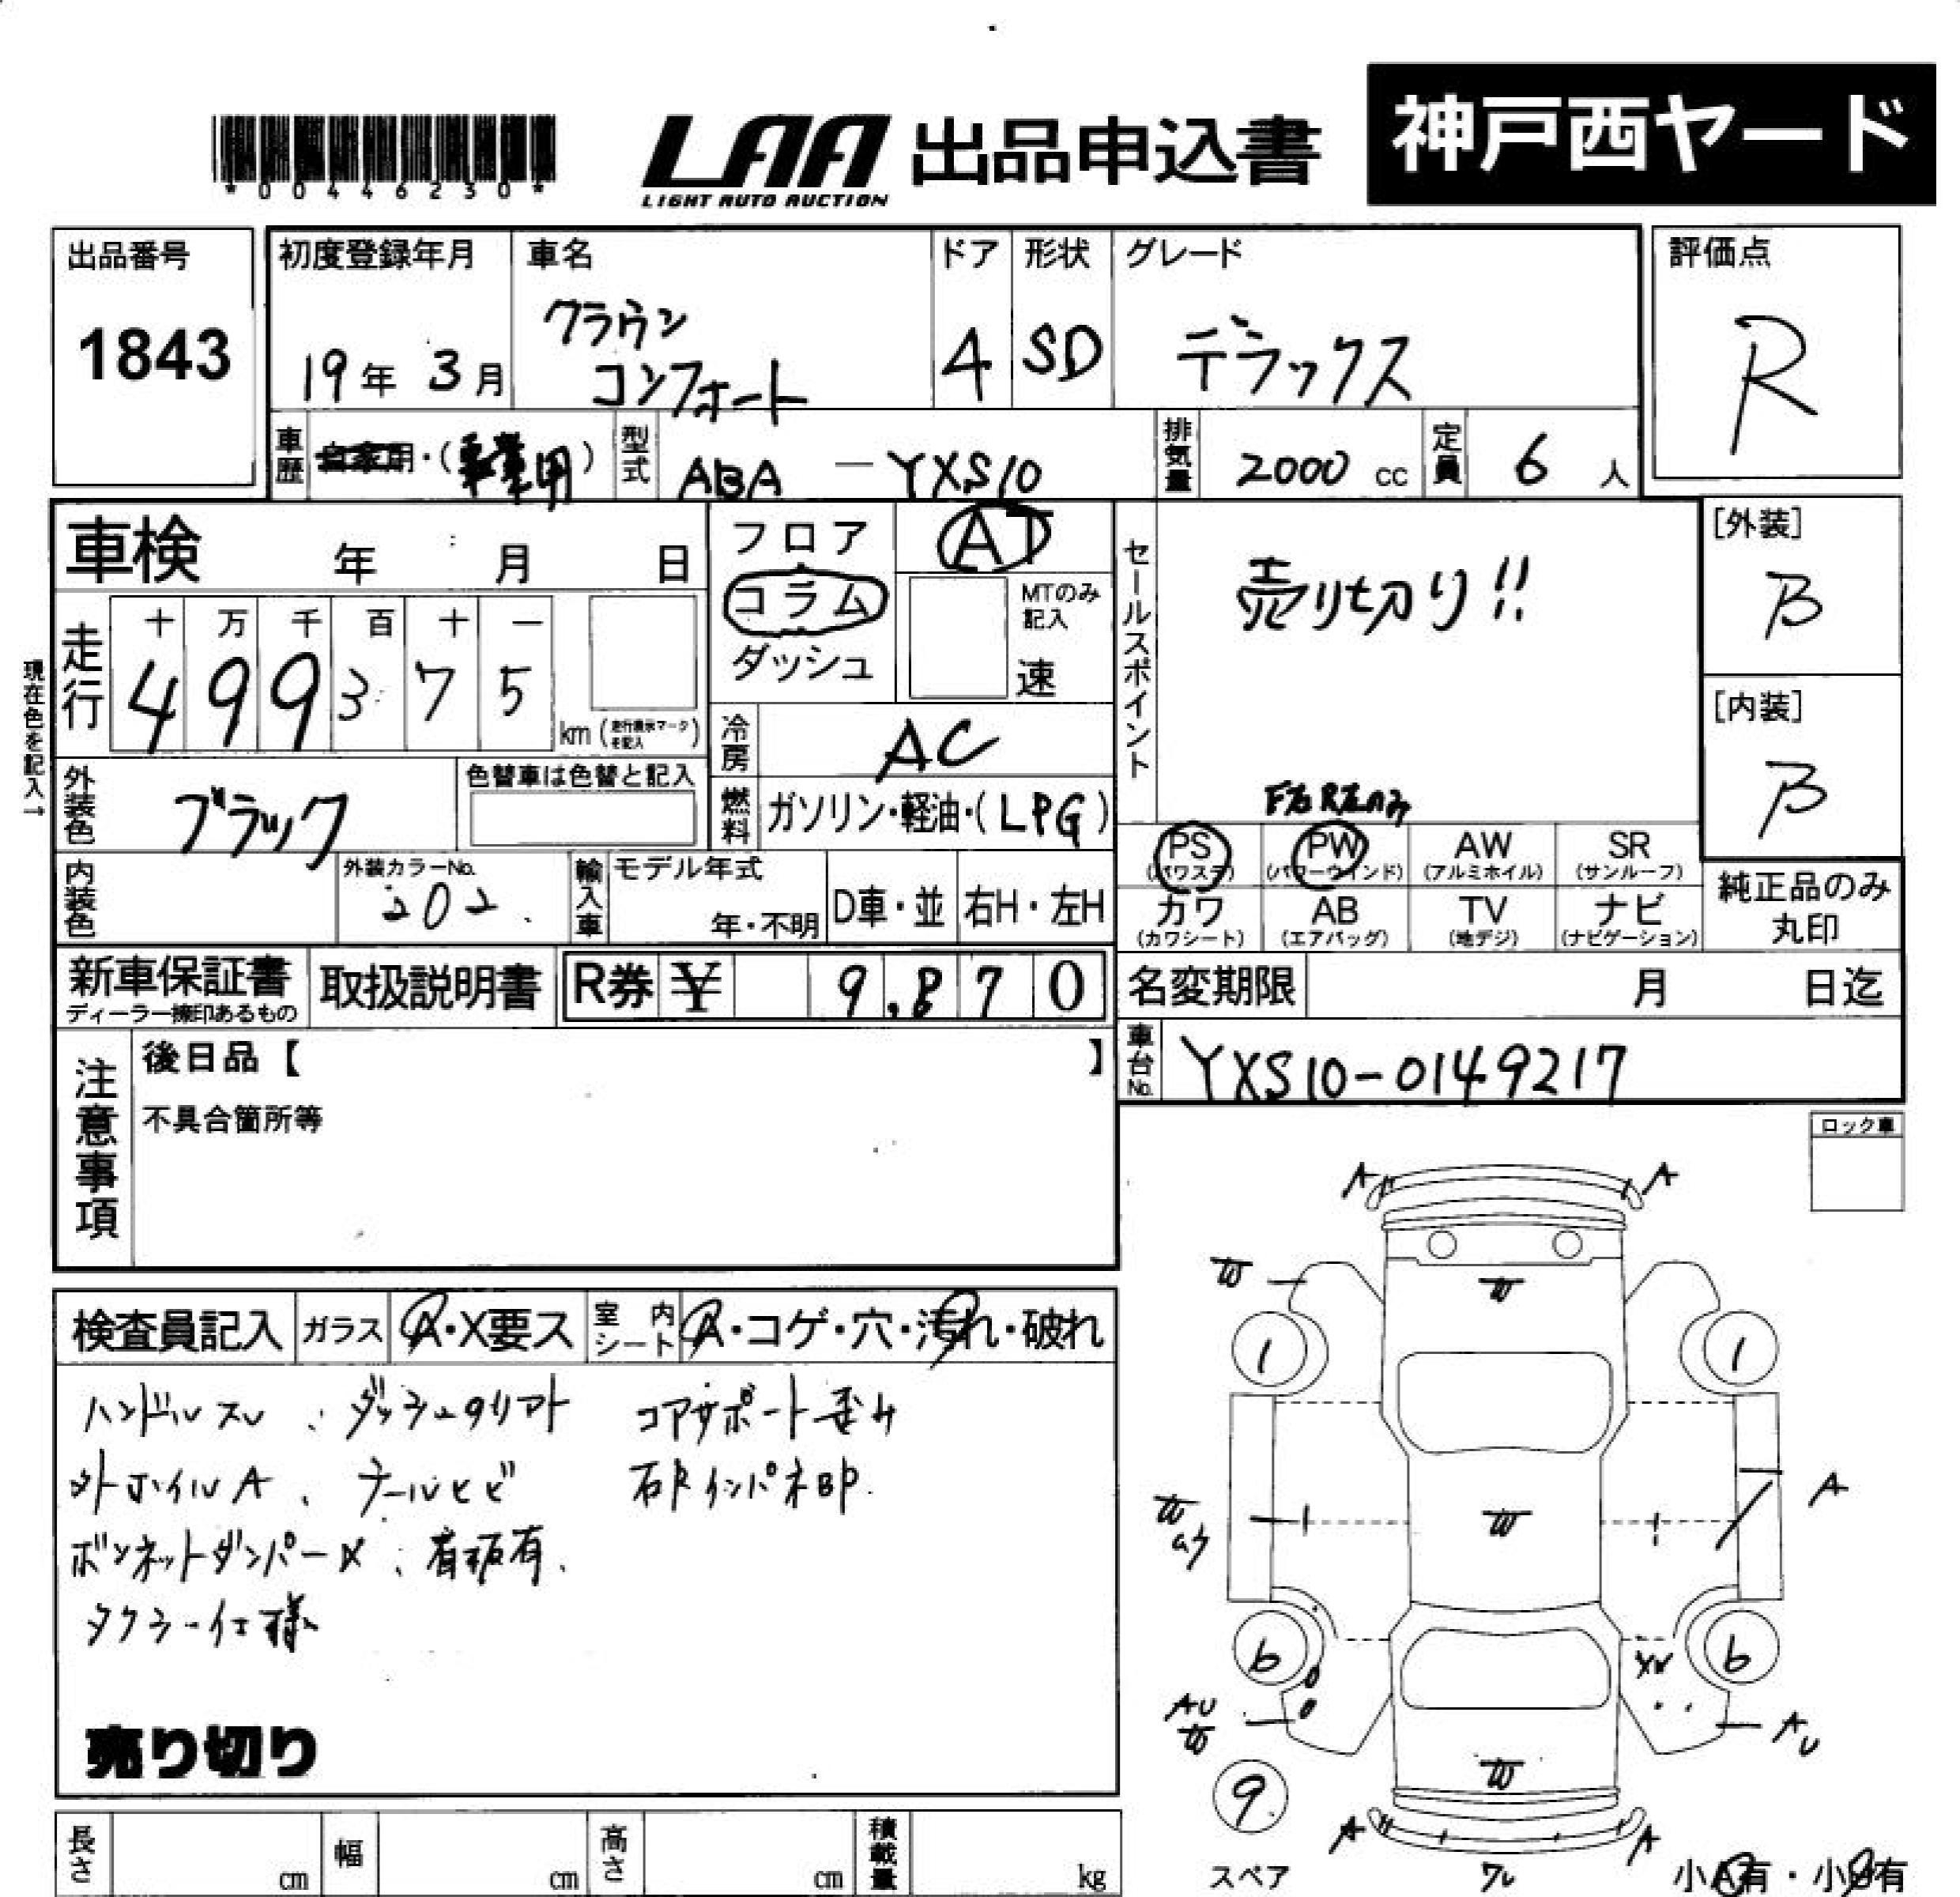 *00446230*
LAA 出品申込書
LIGHT AUTO AUCTION
神戸西ヤード
出品番号
1843
初度登録年月
19年 3月
車名
クラウン
コンフォート
ドア
4
形状
SD
グレード
デラックス
評価点
R
車歴
自家用・(事業用)
型式
ABA - YXS10
排気量
2000 cc
定員
6 人
車検 年 月 日
フロア
コラム
ダッシュ
AT
MTのみ
記入
速
セールスポイント
売り切り!!
F右R左のみ
[外装]
B
[内装]
B
現在色を記入→
走行
十 万 千 百 十 一
4 9 9 3 7 5
km (走行表示マークを記入)
冷房
AC
外装色
ブラック
色替車は色替と記入
燃料
ガソリン・軽油・(LPG)
内装色
外装カラーNo.
202
輸入車
モデル年式
年・不明
D車・並
右H・左H
PS
(パワステ)
PW
(パワーウインド)
AW
(アルミホイル)
SR
(サンルーフ)
カワ
(カワシート)
AB
(エアバッグ)
TV
(地デジ)
ナビ
(ナビゲーション)
純正品のみ
丸印
新車保証書
ディーラー捺印あるもの
取扱説明書
R券 ¥ 9,870
名変期限 月 日迄
車台No.
YXS10-0149217
注意事項
後日品【 】
不具合箇所等
ロック車
検査員記入
ガラス
A・X要ス
室内シート
A・コゲ・穴・汚れ・破れ
ハンドルスレ、ダッシュクリアト コアサポート歪み
外ホイルA、テールヒビ 右Rインパネ凹
ボンネットダンパー✕、看板有、
タクシー仕様
売り切り
A A
W W
1 1
W W A
6 6
XW
AU
W
AU
9
W
A A
スペア
小A有・小B有
長さ cm
幅 cm
高さ cm
積載量 kg